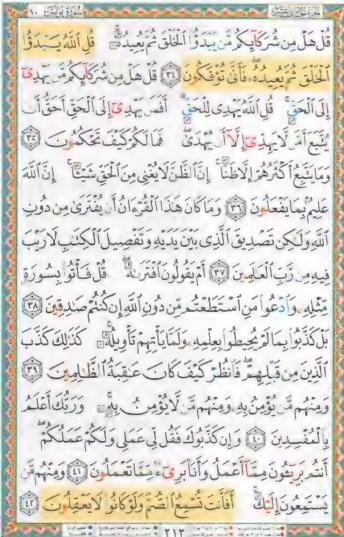 قُلْ هَلْ مِن شُرَكَآئِكُم مَّن يَبْدَؤُا۟ ٱلْخَلْقَ ثُمَّ يُعِيدُهُۥ ۚ قُلِ ٱللَّهُ يَبْدَؤُا۟
ٱلْخَلْقَ ثُمَّ يُعِيدُهُۥ ۖ فَأَنَّىٰ تُؤْفَكُونَ ٣٤ قُلْ هَلْ مِن شُرَكَآئِكُم مَّن يَهْدِىٓ
إِلَى ٱلْحَقِّ ۚ قُلِ ٱللَّهُ يَهْدِى لِلْحَقِّ ۗ أَفَمَن يَهْدِىٓ إِلَى ٱلْحَقِّ أَحَقُّ أَن
يُتَّبَعَ أَمَّن لَّا يَهِدِّىٓ إِلَّآ أَن يُهْدَىٰ ۖ فَمَا لَكُمْ كَيْفَ تَحْكُمُونَ ٣٥
وَمَا يَتَّبِعُ أَكْثَرُهُمْ إِلَّا ظَنًّا ۚ إِنَّ ٱلظَّنَّ لَا يُغْنِى مِنَ ٱلْحَقِّ شَيْـًٔا ۚ إِنَّ ٱللَّهَ
عَلِيمٌۢ بِمَا يَفْعَلُونَ ٣٦ وَمَا كَانَ هَٰذَا ٱلْقُرْءَانُ أَن يُفْتَرَىٰ مِن دُونِ
ٱللَّهِ وَلَٰكِن تَصْدِيقَ ٱلَّذِى بَيْنَ يَدَيْهِ وَتَفْصِيلَ ٱلْكِتَٰبِ لَا رَيْبَ
فِيهِ مِن رَّبِّ ٱلْعَٰلَمِينَ ٣٧ أَمْ يَقُولُونَ ٱفْتَرَىٰهُ ۖ قُلْ فَأْتُوا۟ بِسُورَةٍ
مِّثْلِهِۦ وَٱدْعُوا۟ مَنِ ٱسْتَطَعْتُم مِّن دُونِ ٱللَّهِ إِن كُنتُمْ صَٰدِقِينَ ٣٨
بَلْ كَذَّبُوا۟ بِمَا لَمْ يُحِيطُوا۟ بِعِلْمِهِۦ وَلَمَّا يَأْتِهِمْ تَأْوِيلُهُۥ ۚ كَذَٰلِكَ كَذَّبَ
ٱلَّذِينَ مِن قَبْلِهِمْ ۖ فَٱنظُرْ كَيْفَ كَانَ عَٰقِبَةُ ٱلظَّٰلِمِينَ ٣٩
وَمِنْهُم مَّن يُؤْمِنُ بِهِۦ وَمِنْهُم مَّن لَّا يُؤْمِنُ بِهِۦ ۚ وَرَبُّكَ أَعْلَمُ
بِٱلْمُفْسِدِينَ ٤٠ وَإِن كَذَّبُوكَ فَقُل لِّى عَمَلِى وَلَكُمْ عَمَلُكُمْ ۖ
أَنتُم بَرِيٓـُٔونَ مِمَّآ أَعْمَلُ وَأَنَا۠ بَرِىٓءٌ مِّمَّا تَعْمَلُونَ ٤١ وَمِنْهُم مَّن
يَسْتَمِعُونَ إِلَيْكَ ۚ أَفَأَنتَ تُسْمِعُ ٱلصُّمَّ وَلَوْ كَانُوا۟ لَا يَعْقِلُونَ ٤٢
٢١٣